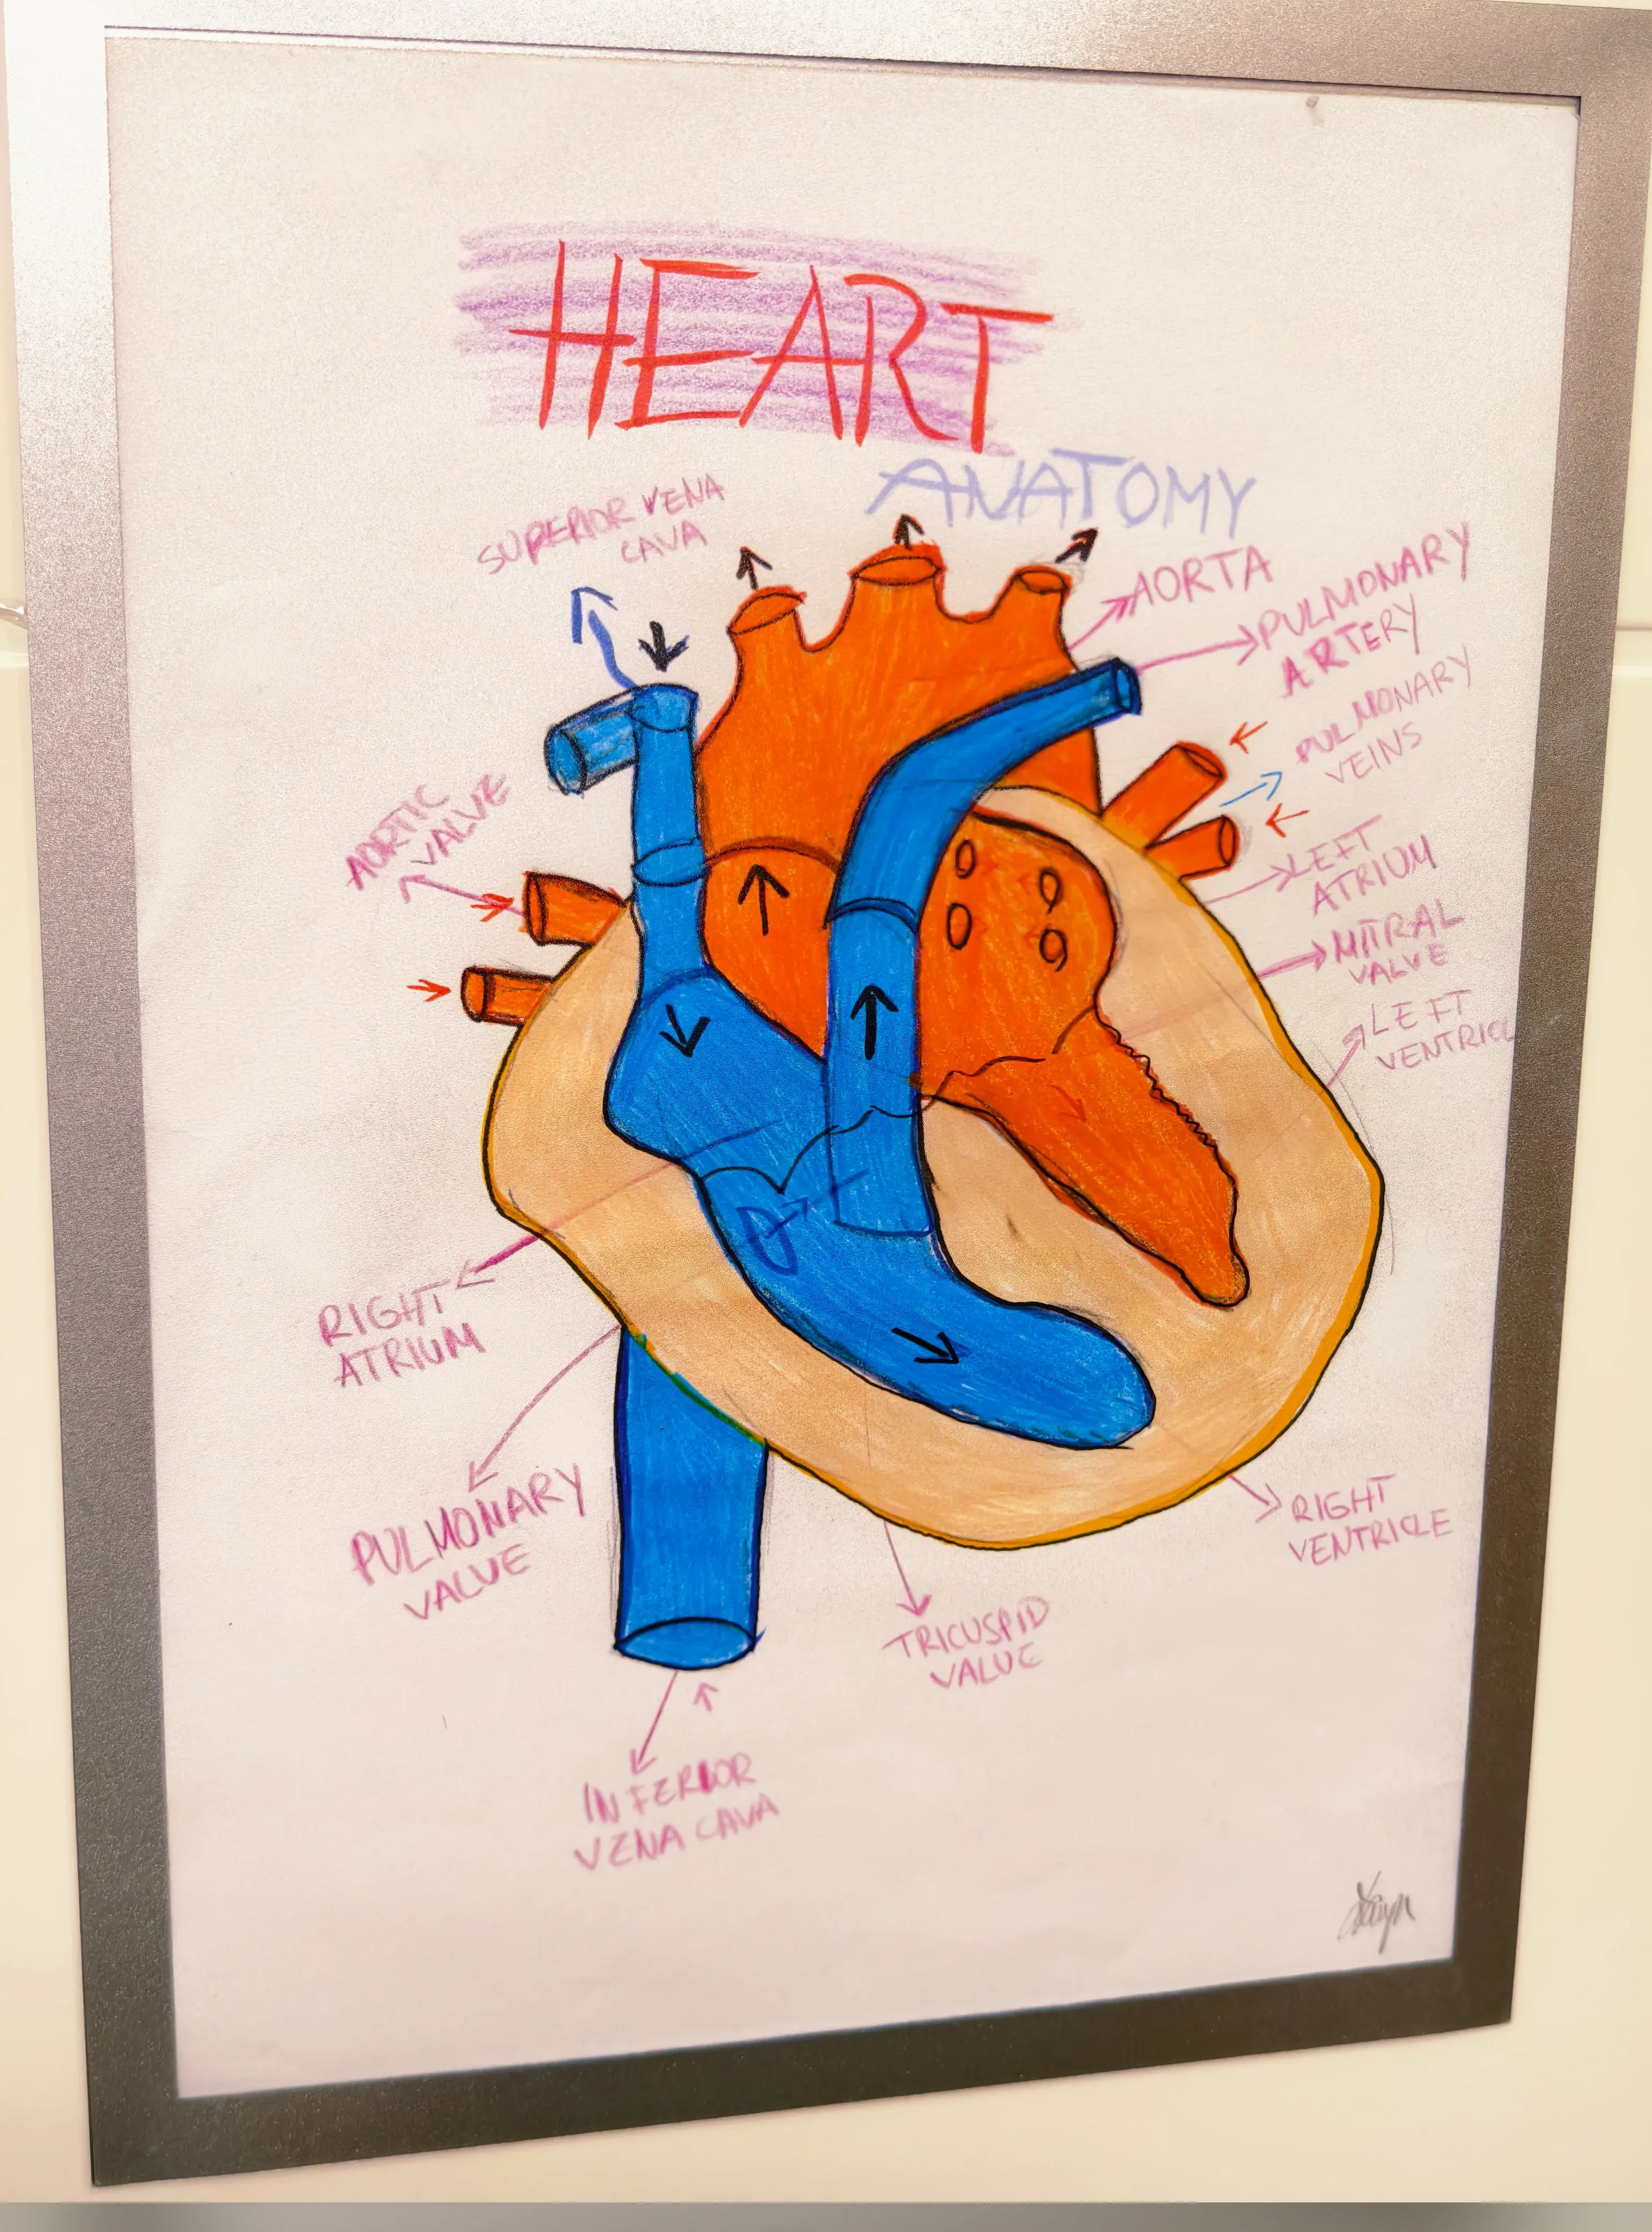 HEART
ANATOMY
SUPERIOR VENA
CAVA
AORTA
PULMONARY
ARTERY
PULMONARY
VEINS
AORTIC
VALVE
LEFT
ATRIUM
MITRAL
VALVE
LEFT
VENTRICL
RIGHT
ATRIUM
PULMONARY
VALVE
RIGHT
VENTRICLE
TRICUSPID
VALVE
INFERIOR
VENA CAVA